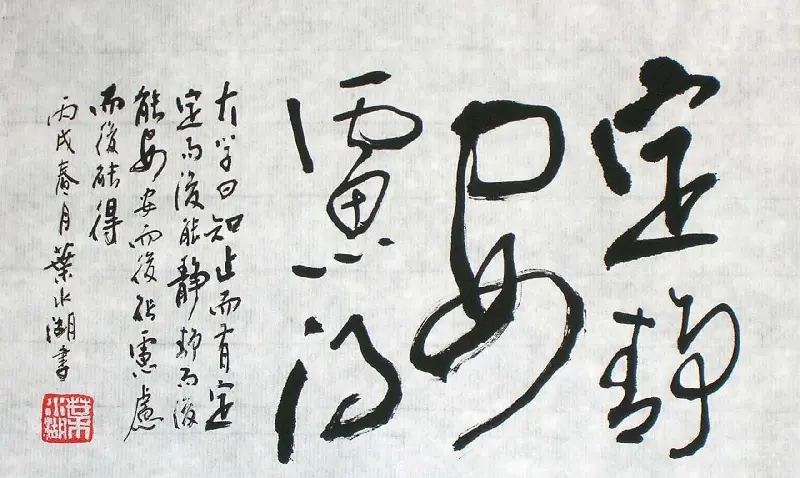 定靜
安
慮得
大学曰知止而有定
定而後能靜靜而後
能安安而後能慮慮
而後能得
丙戌春月葉水湖書
葉水湖